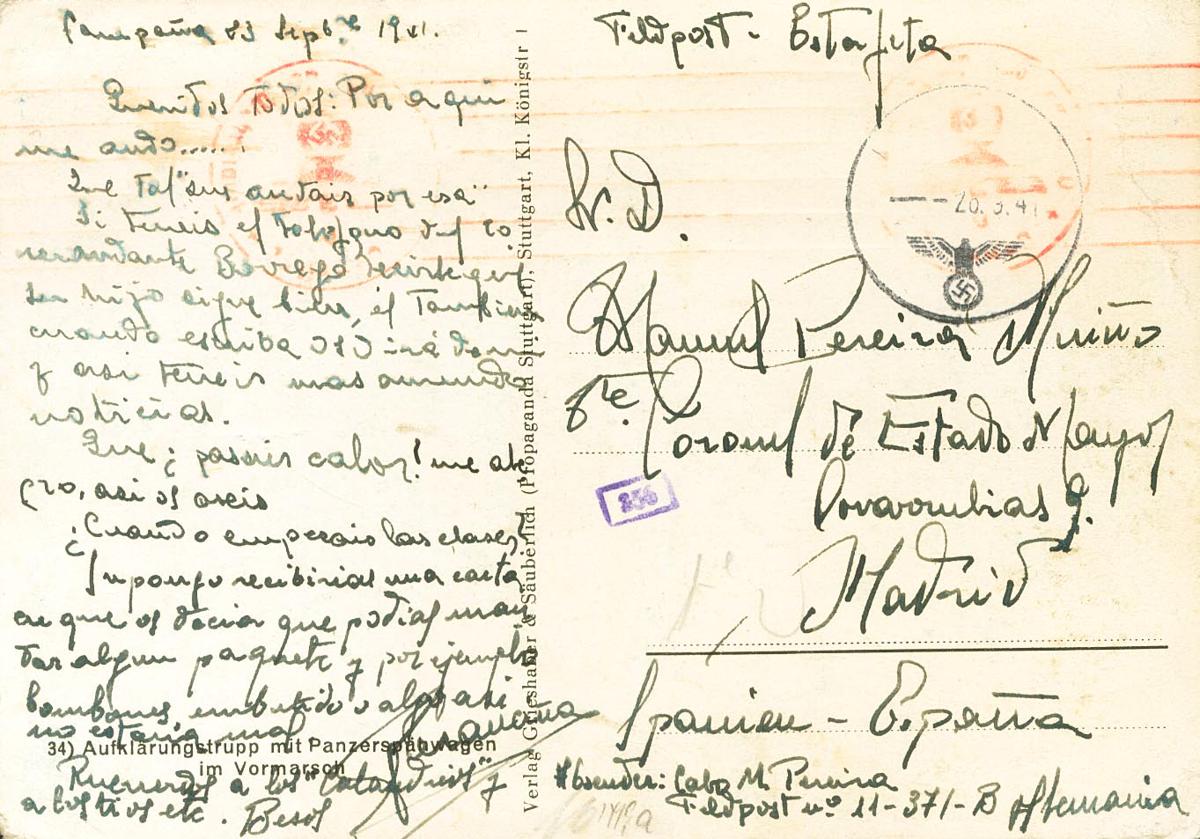 Campaña 23 Sepbre 1941.
Queridos Todos: Por aqui
me ando.....
Que Tal andais por esa
Si teneis el telefono del Co
mandante Borrego decirle que
su hijo sigue bien, el tambien
cuando escriba os dirá de mi
y asi teneis mas amenudo
noticias.
Que ¡ pasais calor! me ale
gro, asi os aseis
¿Cuando empezais las clases?
Supongo recibirias una carta
en que os decia que podias man
dar algun paquete y por ejemplo
bombones, embutido o algo asi
no estaria mal.
Recuerdos a los y
a los tios etc. Besos
34) Aufklärungstrupp mit Panzerspähwagen
im Vormarsch
Verlag Grieshaber & Säuberlich (Propaganda Stuttgart), Stuttgart, Kl. Königstr 1
Feldpost - Estafeta
Sr. D.
Manuel Pereira Muiño
Tte. Coronel de Estado Mayor
Covarrubias 9.
Madrid
Spanien - España
Absender: Cabo M. Pereira
Feldpost nº 11-371-B Alemania
256